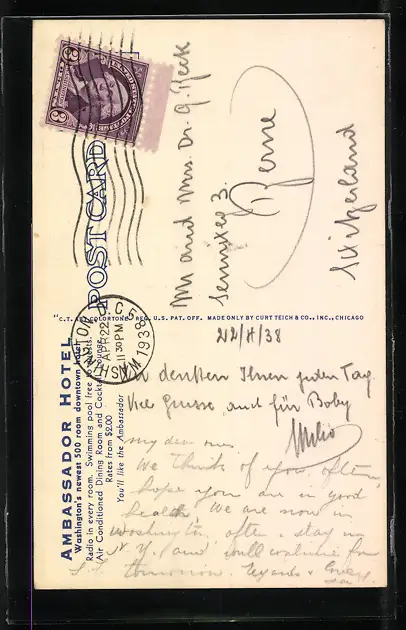 AMBASSADOR HOTEL
Washington's newest 500 room downtown hotel
Radio in every room. Swimming pool free to guests.
Air Conditioned Dining Room and Cocktail Lounge
Rates from $2.00
You'll like the Ambassador
POST CARD
WASHINGTON D.C. 5
APR 22
11 30 PM
1938
"C.T. ART-COLORTONE" REG. U.S. PAT. OFF. MADE ONLY BY CURT TEICH & CO., INC., CHICAGO
Mr and Mrs. Dr. J.
3.
Berne
Switzerland
22/4/38
denken Ihnen jeden Tag.
Viele Grüsse, auch für Boby
My dear
We think of you often,
hope you are in good
health. We are now in
Washington, after a stay in
N.Y. and will continue for
tomorrow. Regards &